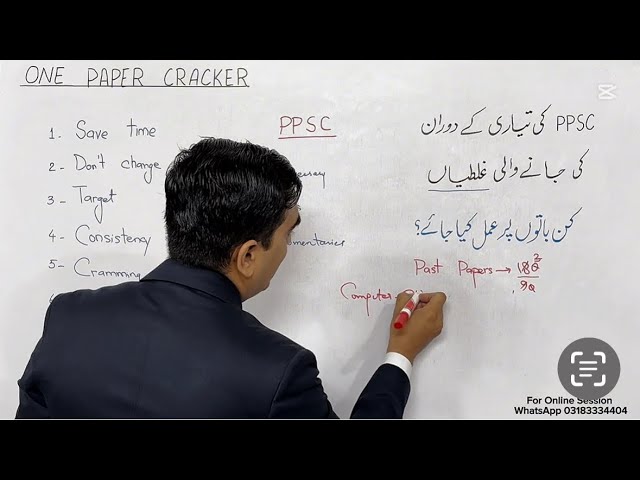 ONE PAPER CRACKER
1- Save time
PPSC
2- Don't change
3- Target
4- Consistency
5- Cramming
PPSC کی تیاری کے دوران
کی جانے والی غلطیاں
کن باتوں پر عمل کیا جائے؟
Past Papers →
Computer
For Online Session
WhatsApp 03183334404